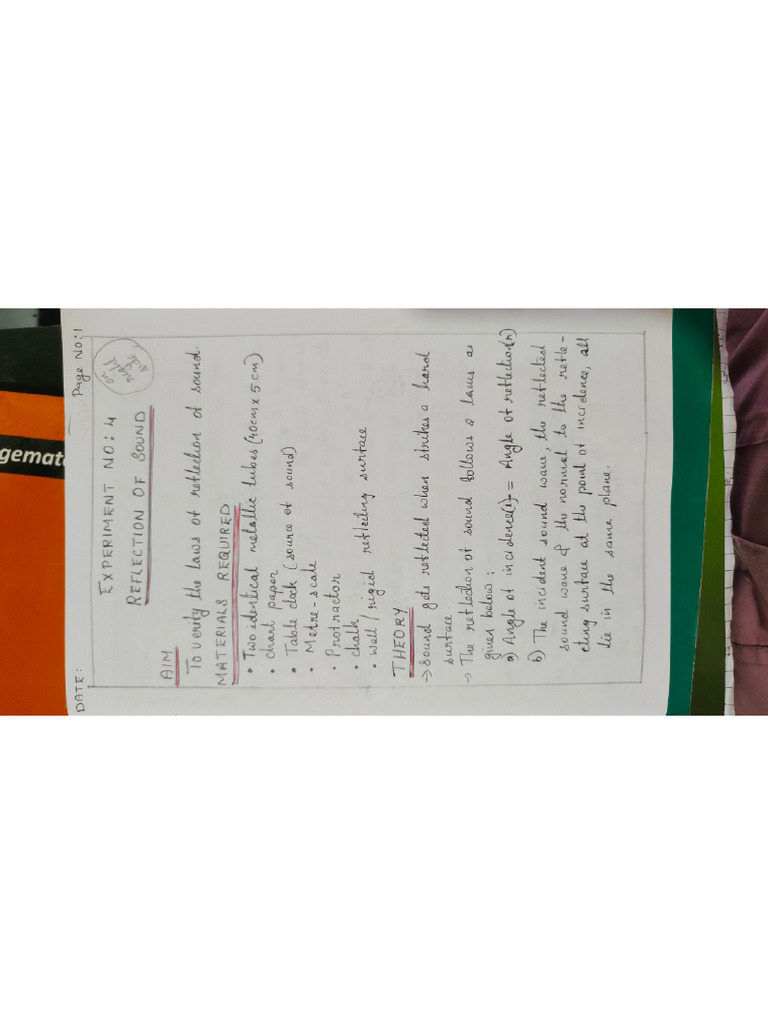 DATE:
Page No:1
on
right
side
EXPERIMENT NO: 4
REFLECTION OF SOUND
AIM
To verify the laws of reflection of sound.
MATERIALS REQUIRED
• Two identical metallic tubes (40cm x 5cm)
• Chart paper
• Table clock (source of sound)
• Metre-scale
• Protractor
• chalk
• Well / rigid reflecting surface
THEORY
→ Sound gets reflected when strikes a hard
surface.
→ The reflection of sound follows 2 laws as
given below:
a) Angle of incidence(i) = Angle of reflection(r)
b) The incident sound wave, the reflected
sound wave & the normal to the refle-
cting surface at the point of incidence, all
lie in the same plane.
gemat